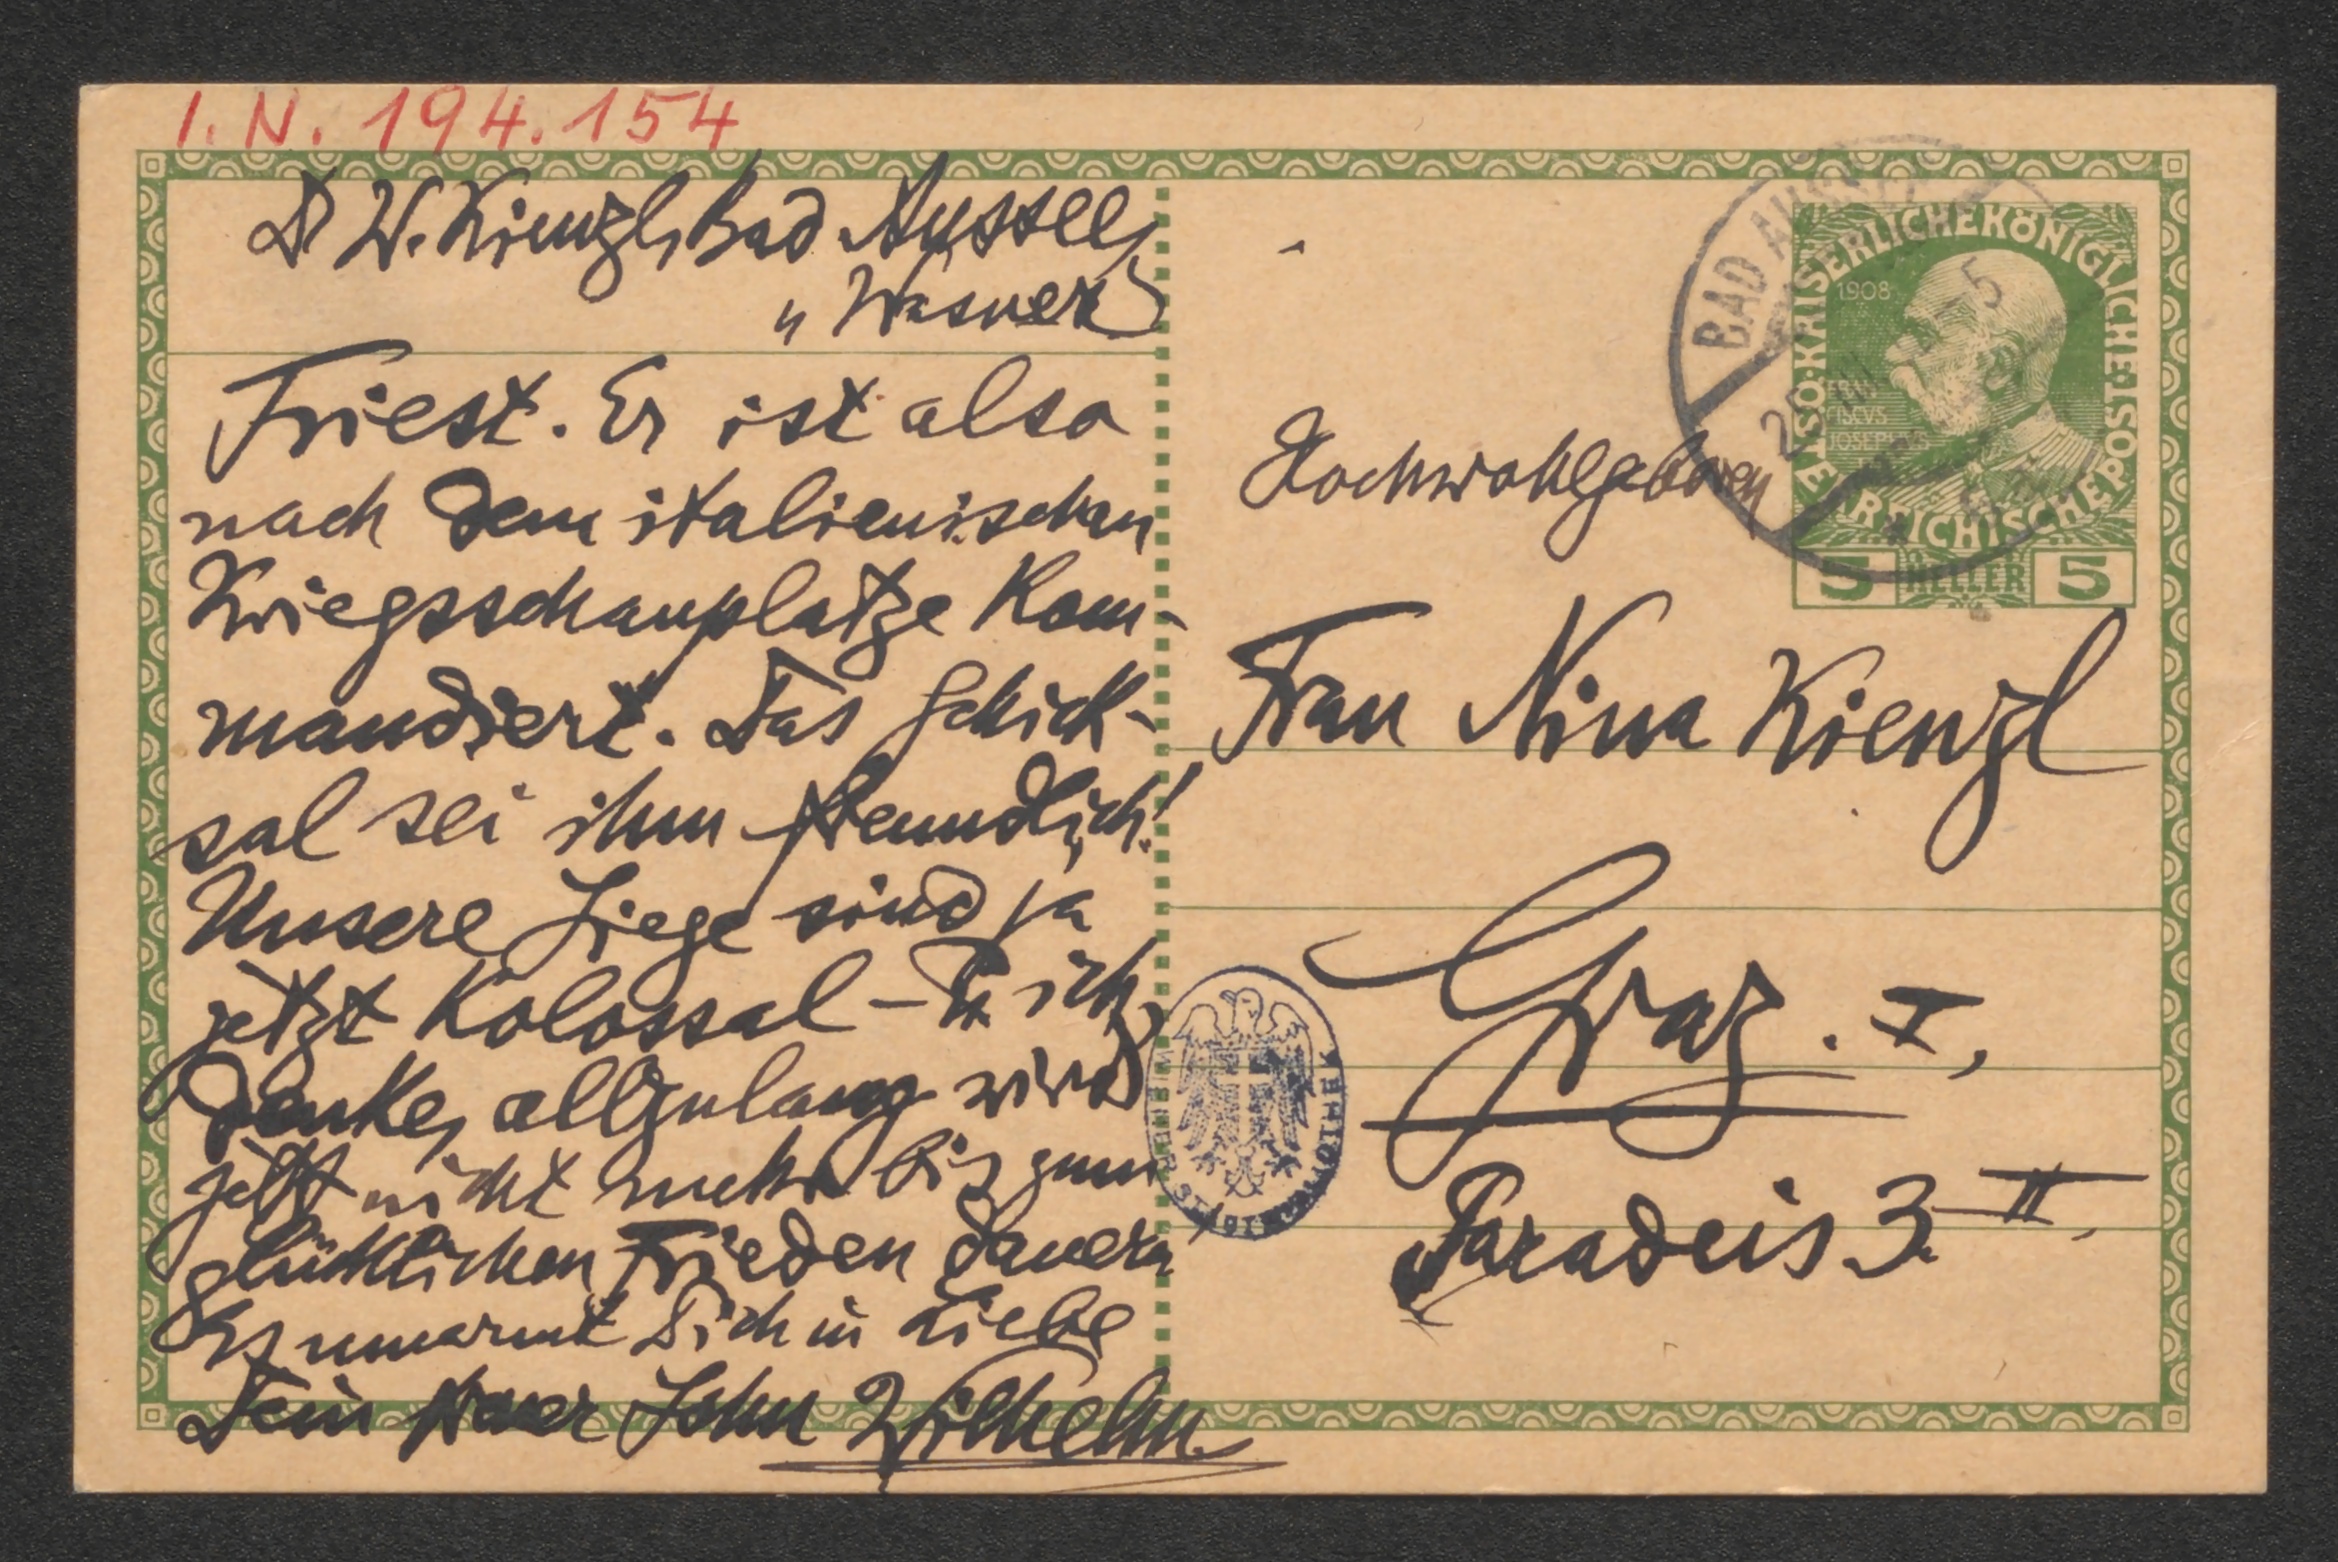 I. N. 194.154
Dr W. Kienzl, Bad Aussee,
"Wasner"
Triest. Er ist also
nach dem italienischen
Kriegsschauplatze kom-
mandiert. Das Schick-
sal sei ihm freundlich!
Unsere Siege sind ja
jetzt kolossal – u. ich
denke, allzulang wird
jetzt nicht mehr bis zum
glücklichen Frieden dauern
Es umarmt Dich in Liebe
Dein treuer Sohn Wilhelm
BAD AUSSEE
KAISERLICHE KÖNIGLICHE
ÖSTERREICHISCHE POST
1908
5 HELLER 5
Hochwohlgeboren
Frau Nina Kienzl
Graz. I,
Paradeis 3. II.
WIENER STADTBIBLIOTHEK